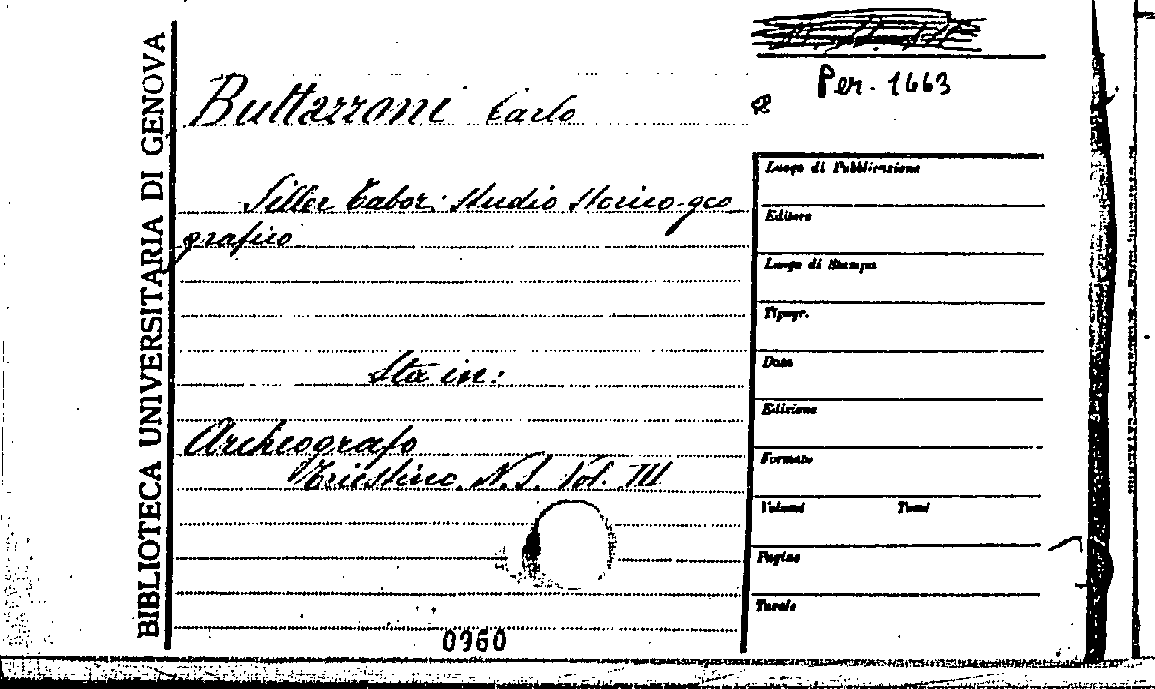 BIBLIOTECA UNIVERSITARIA DI GENOVA
Per. 1663
Buttazzoni Carlo
Siller Tabor: Studio storico-geo
grafico
Sta in:
Archeografo
Triestino. N.S. Vol. III
0960
Luogo di Pubblicazione
Editore
Luogo di Stampa
Tipogr.
Data
Edizione
Formato
Volumi Tomi
Pagine
Tavole